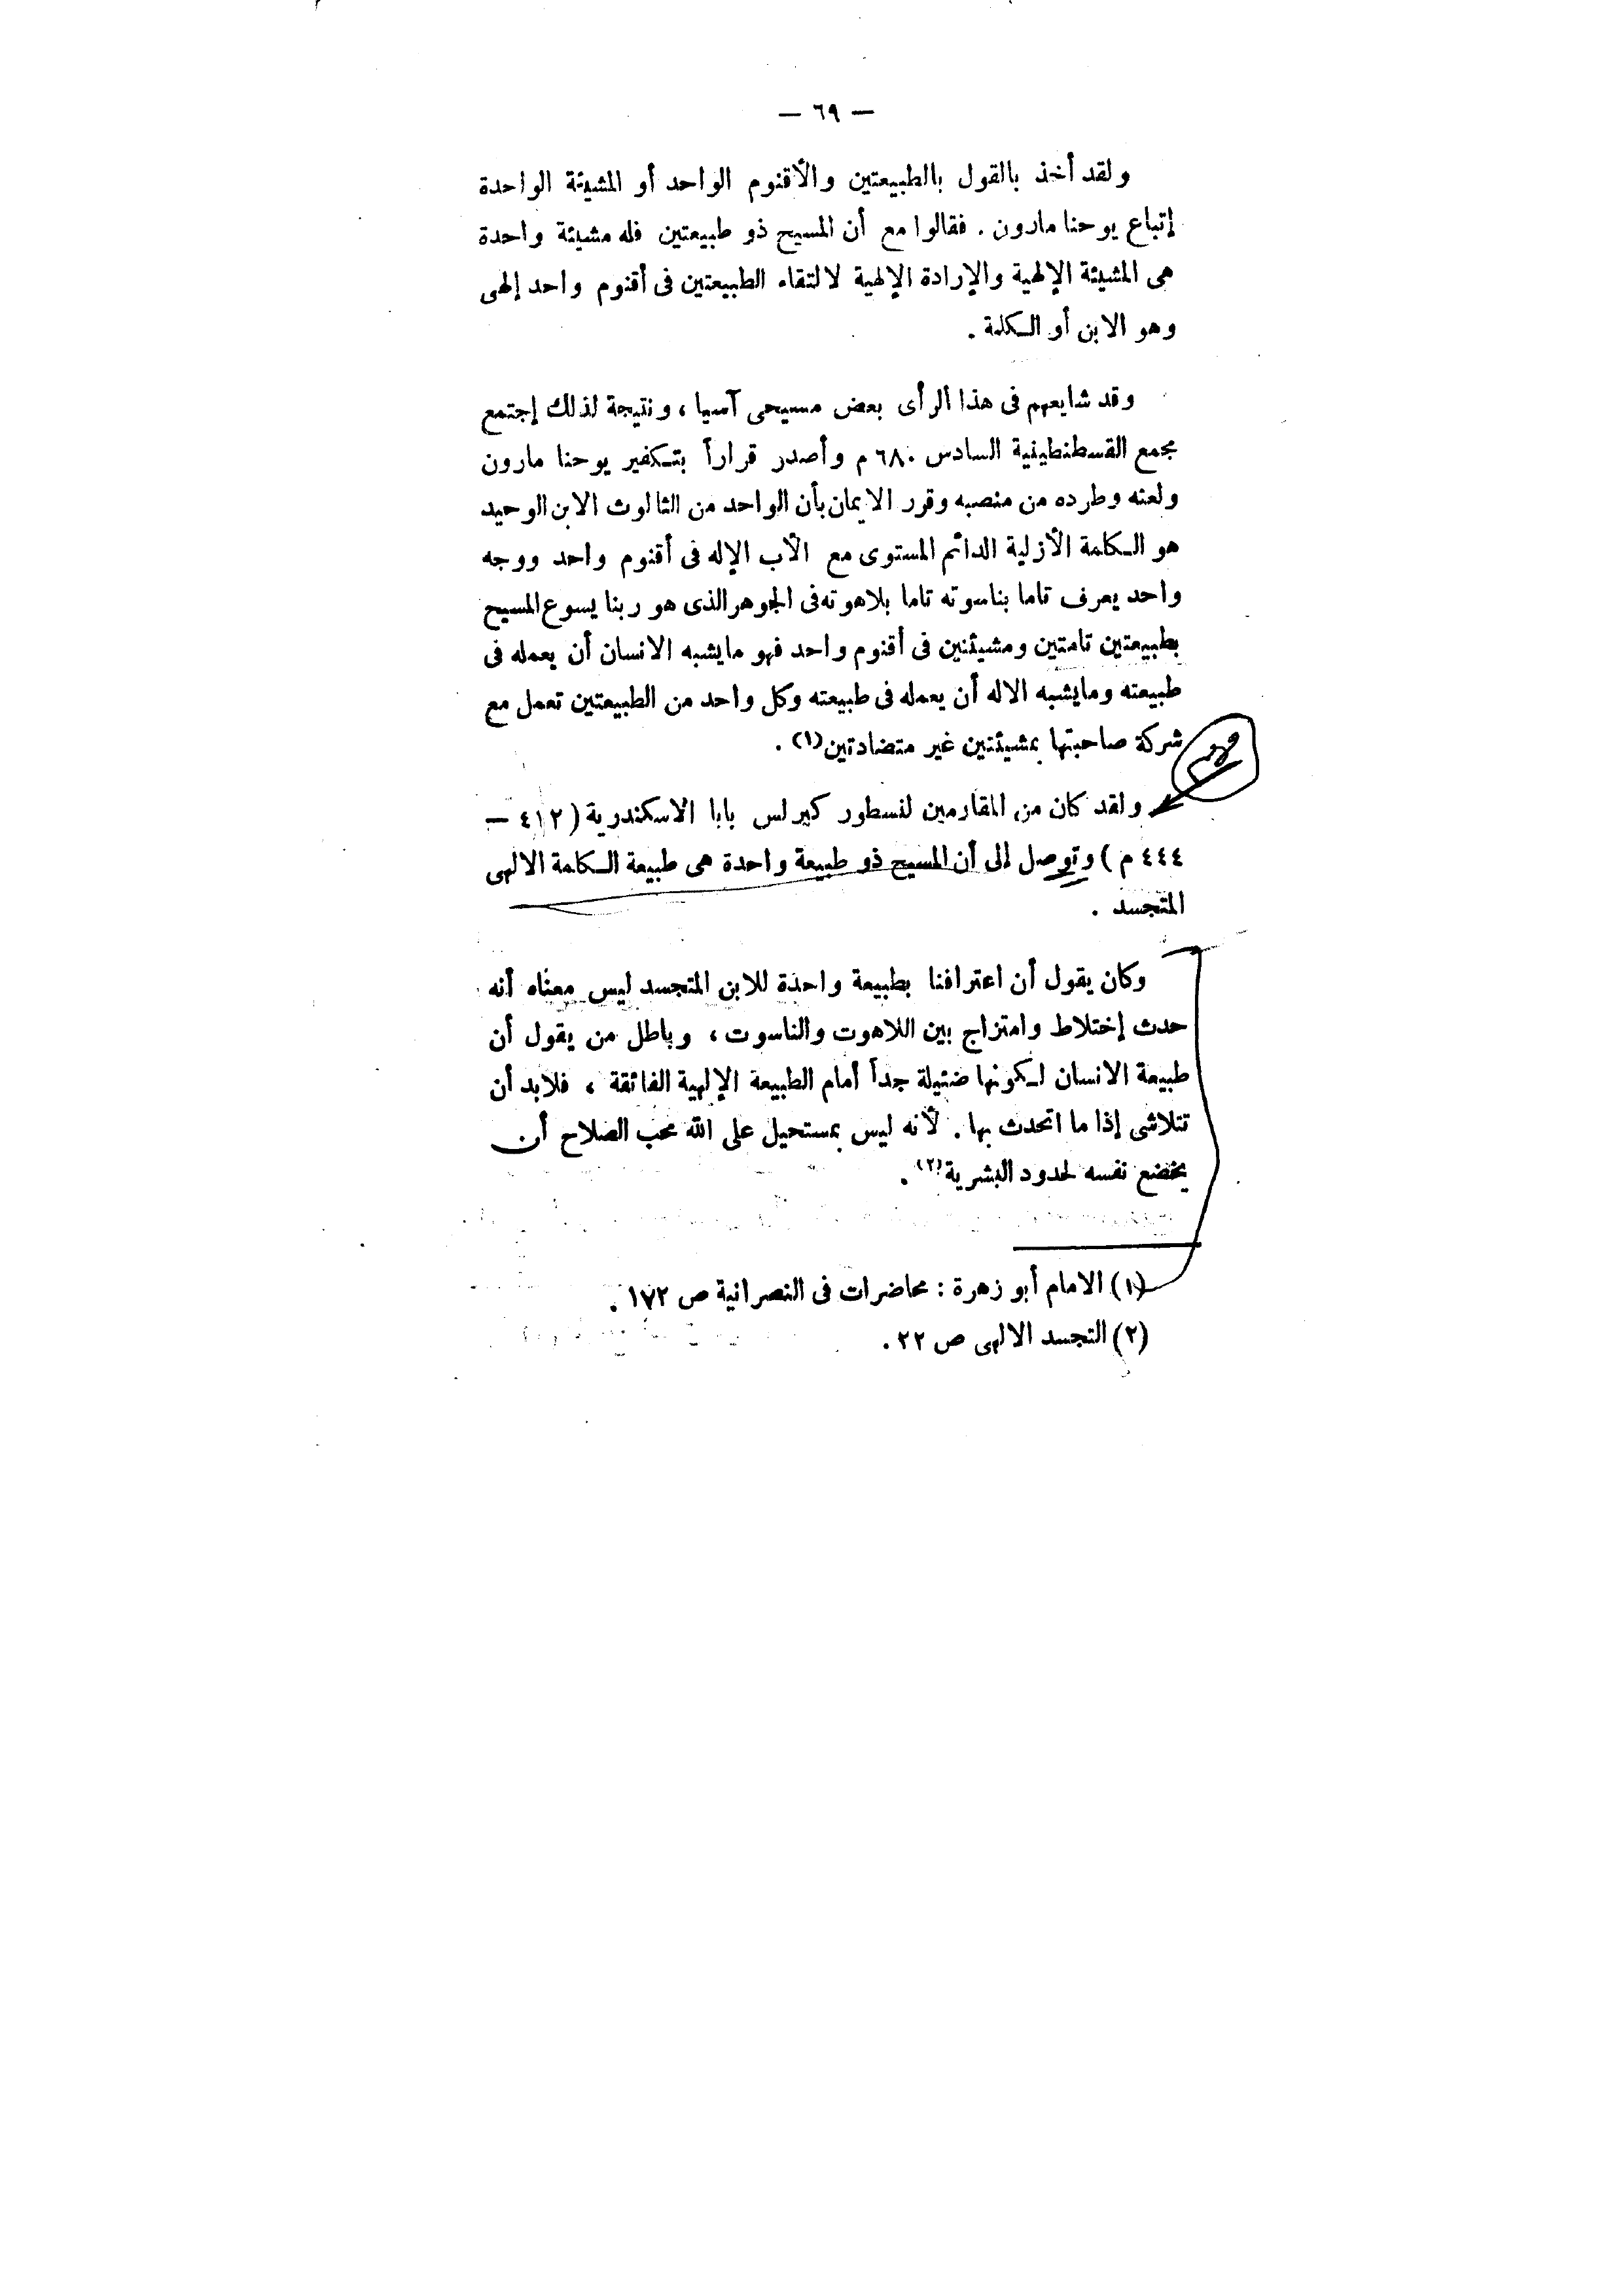 — ٦٩ —
ولقد أخذ بالقول بالطبيعتين والأقنوم الواحد أو المشيئة الواحدة
إتباع يوحنا مارون . فقالوا مع أن المسيح ذو طبيعتين فله مشيئة واحدة
هى المشيئة الإلهية والإرادة الإلهية لالتقاء الطبيعتين فى أقنوم واحد إلهى
وهو الابن أو الكلمة .
وقد شايعهم فى هذا الرأى بعض مسيحى آسيا ، ونتيجة لذلك إجتمع
مجمع القسطنطينية السادس ٦٨٠ م وأصدر قراراً بتكفير يوحنا مارون
ولعنه وطرده من منصبه وقرر الايمان بأن الواحد من الثالوث الابن الوحيد
هو الكلمة الأزلية الدائم المستوى مع الآب الإله فى أقنوم واحد ووجه
واحد يعرف تاما بناسوته تاما بلاهوته فى الجوهر الذى هو ربنا يسوع المسيح
بطبيعتين تامتين ومشيئتين فى أقنوم واحد فهو مايشبه الانسان أن يعمله فى
طبيعته ومايشبه الاله أن يعمله فى طبيعته وكل واحد من الطبيعتين تعمل مع
شركة صاحبتها بمشيئتين غير متضادتين (١) .
مهم
ولقد كان من المقارمين لنسطور كيرلس بابا الاسكندرية ( ٤١٢ —
٤٤٤ م ) وتوصل إلى أن المسيح ذو طبيعة واحدة هى طبيعة الكلمة الالهى
المتجسد .
وكان يقول أن اعترافنا بطبيعة واحدة للابن المتجسد ليس معناه أنه
حدث إختلاط وامتزاج بين اللاهوت والناسوت ، وباطل من يقول أن
طبيعة الانسان لكونها ضئيلة جداً أمام الطبيعة الإلهية الفائقة ، فلابد أن
تتلاشى إذا ما اتحدث بها . لأنه ليس بمستحيل على الله محب الصلاح أن
يخضع نفسه لحدود البشرية (٢) .
(١) الامام أبو زهرة : محاضرات فى النصرانية ص ١٧٢ .
(٢) التجسد الالهى ص ٢٢ .